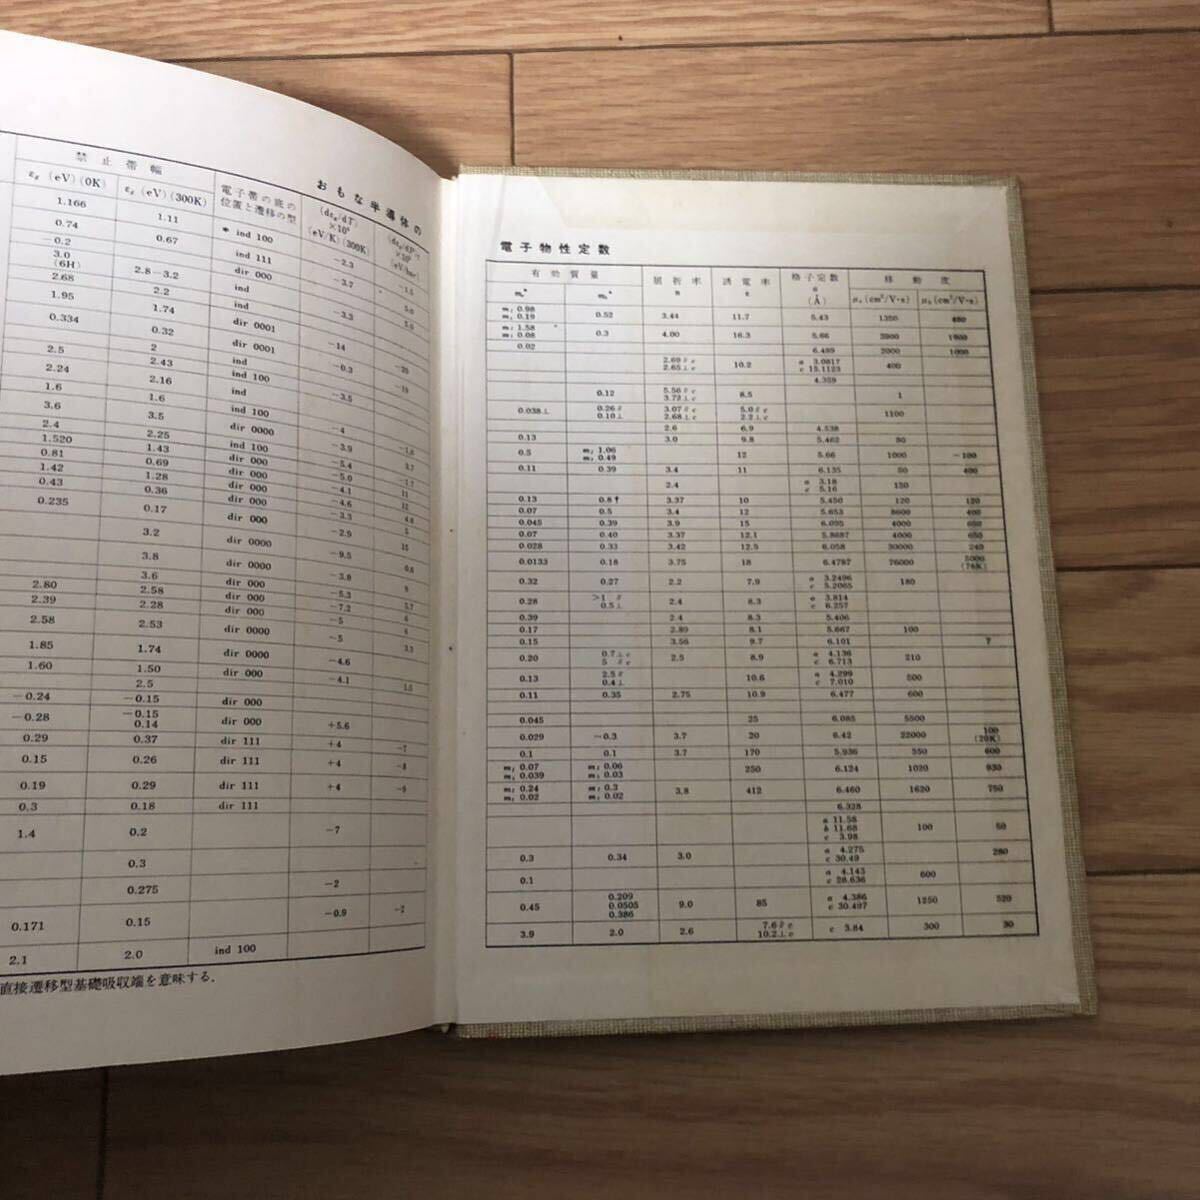 おもな半導体の
禁止帯幅
εg (eV)(0K) εg (eV)(300K) 電子帯の底の位置と遷移の型 (dεg/dT) ×10⁴ (eV/K)(300K)
1.166 1.11 * ind 100 −2.3
0.74 0.67 ind 111 −3.7
0.2 dir 000
3.0 (6H) 2.8-3.2 ind −3.3
2.68 2.2
1.95 1.74 dir 0001 −14
0.334 0.32 dir 0001 −0.3
2 ind
2.5 2.43 ind 100 −3.5
2.24 2.16 ind
1.6 1.6 ind 100
3.6 3.5 dir 0000 −4
2.4 2.25 ind 100 −3.9
1.520 1.43 dir 000 −5.4
0.81 0.69 dir 000 −5.0
1.42 1.28 dir 000 −4.1
0.43 0.36 dir 000 −4.6
0.235 0.17 dir 000 −3.3
3.2 dir 0000 −2.9
3.8 dir 0000 −9.5
3.6 dir 000 −3.8
2.80 2.58 dir 000 −5.3
2.39 2.28 dir 000 −7.2
2.58 2.53 dir 0000 −5
1.85 1.74 dir 0000 −4.6
1.60 1.50 dir 000 −4.1
2.5
−0.24 −0.15 dir 000
−0.28 −0.15
0.14 dir 000 +5.6
0.29 0.37 dir 111 +4 −7
0.15 0.26 dir 111 +4 −8
0.19 0.29 dir 111 +4 −9
0.3 0.18 dir 111
1.4 0.2 −7
0.3
0.275 −2
0.171 0.15 −0.9 −2
2.1 2.0 ind 100
直接遷移型基礎吸収端を意味する.
電子物性定数
有効質量 屈折率 誘電率 格子定数 移動度
me* mh* n ε a (Å) μe(cm²/V·s) μh(cm²/V·s)
ml 0.98
mt 0.19 0.52 3.44 11.7 5.43 1350 480
ml 1.58
mt 0.08 0.3 4.00 16.3 5.66 3900 1900
0.02 6.489 2000 1000
2.69∥c
2.65⊥c 10.2 a 3.0817
c 15.1123 400
4.359
0.12 5.56∥c
3.72⊥c 8.5 1
0.038⊥ 0.26∥
0.10⊥ 3.07∥c
2.68⊥c 5.0∥c
2.2⊥c 1100
2.6 6.9 4.538
0.13 3.0 9.8 5.462 80
0.5 ml 1.06
mt 0.49 12 5.66 1000 ~100
0.11 0.39 3.4 11 6.135 50 400
2.4 a 3.18
c 5.16 150
0.13 0.8† 3.37 10 5.450 120 120
0.07 0.5 3.4 12 5.653 8600 400
0.045 0.39 3.9 15 6.095 4000 650
0.07 0.40 3.37 12.1 5.8687 4000 650
0.028 0.33 3.42 12.5 6.058 30000 240
0.0133 0.18 3.75 18 6.4787 76000 5000 (78K)
0.32 0.27 2.2 7.9 a 3.2496
c 5.2065 180
0.28 >1 ∥
0.5⊥ 2.4 8.3 a 3.814
c 6.257
0.39 2.4 8.3 5.406
0.17 2.89 8.1 5.667 100
0.15 3.56 9.7 6.101 7
0.20 0.7⊥c
5 ∥c 2.5 8.9 a 4.136
c 6.713 210
0.13 2.5∥
0.4⊥ 10.6 a 4.299
c 7.010 500
0.11 0.35 2.75 10.9 6.477 600
0.045 25 6.085 5500
0.029 ~0.3 3.7 20 6.42 22000 100 (20K)
0.1 0.1 3.7 170 5.936 550 600
ml 0.07
mt 0.039 ml 0.06
mt 0.03 250 6.124 1020 930
ml 0.24
mt 0.02 ml 0.3
mt 0.02 3.8 412 6.460 1620 750
6.328
a 11.58
b 11.68
c 3.98 100 50
0.3 0.34 3.0 a 4.275
c 30.49 280
0.1 a 4.143
c 28.636 600
0.45 0.209
0.0505
0.386 9.0 85 a 4.386
c 30.497 1250 520
3.9 2.0 2.6 7.6∥c
10.2⊥c c 3.84 300 30